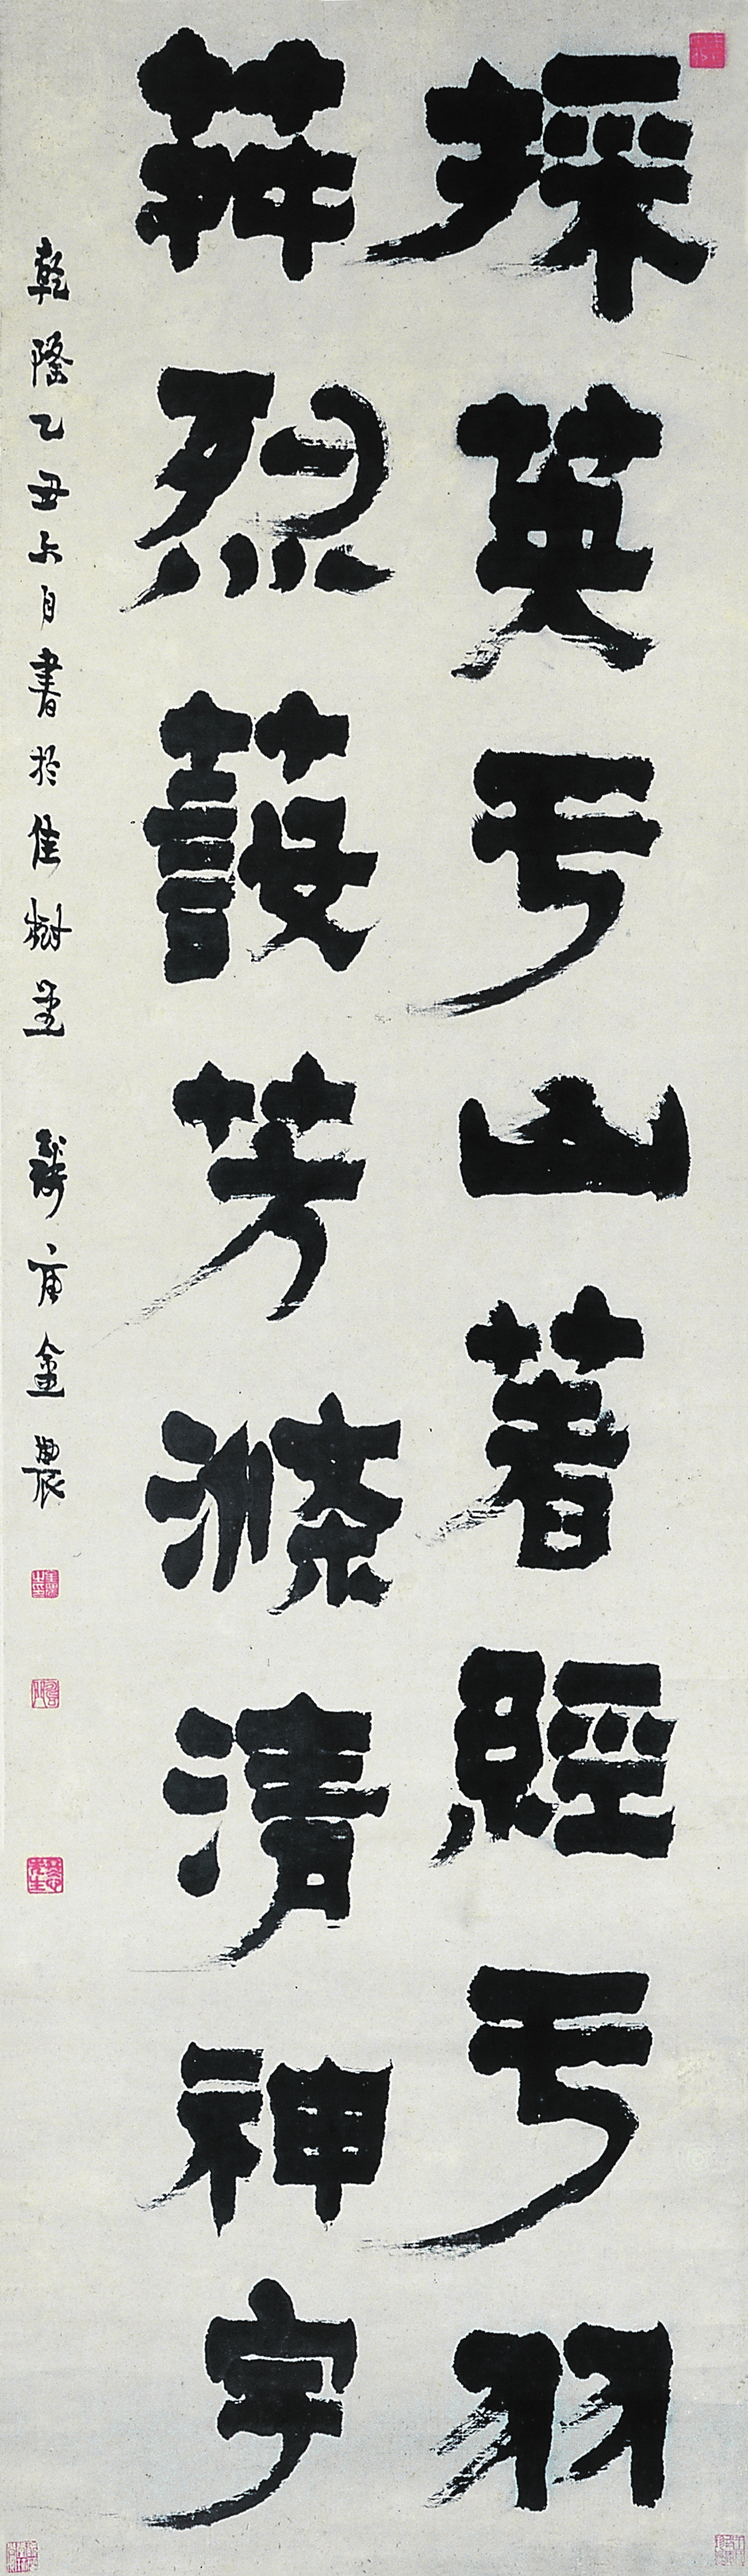 採英于山著經于羽
荈烈蔎芳滌清神宇
乾隆乙丑六月書於佳樹堂 錢唐金農